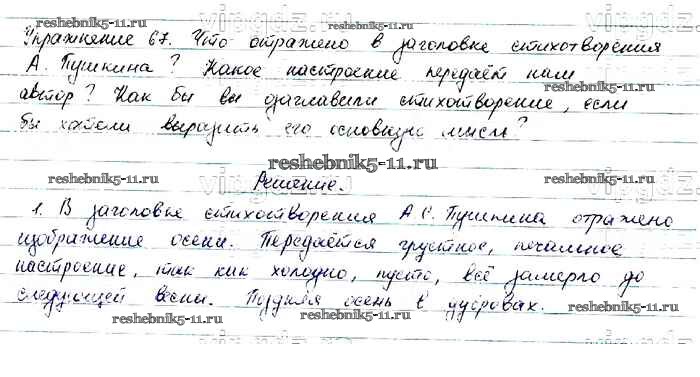 vipgdz.ru vipgdz.ru
reshebnik5-11.ru reshebnik5-11.ru
Упражнение 67. Что отражено в заголовке стихотворения
А. Пушкина? Какое настроение передаёт нам
автор? Как бы вы озаглавили стихотворение, если
бы хотели выразить его основную мысль?
reshebnik5-11.ru
reshebnik5-11.ru reshebnik5-11.ru
vipgdz.ru vipgdz.ru
Решение.
1. В заголовке стихотворения А С. Пушкина отражено
изображение осени. Передаётся грустное, печальное
настроение, так как холодно, пусто, всё замерло до
следующей весны. Поздняя осень в дубровах.
reshebnik5-11.ru reshebnik5-11.ru
vipgdz.ru
reshebnik5-11.ru